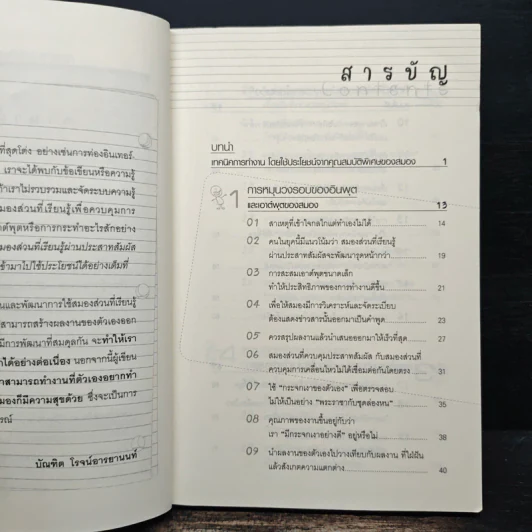 ที่สุดโต่ง อย่างเช่นการท่องอินเทอร์-
เราจะได้พบกับข้อเขียนหรือความรู้
ถ้าเราไม่รวบรวมและจัดระบบความรู้
สมองส่วนที่เรียนรู้เพื่อควบคุมการ
าต์พุตหรือการกระทำอะไรสักอย่าง
สมองส่วนที่เรียนรู้ผ่านประสาทสัมผัส
เข้ามาไปใช้ประโยชน์ได้อย่างเต็มที่
นและพัฒนาการใช้สมองส่วนที่เรียนรู้
สามารถสร้างผลงานของตัวเองออก
มีการพัฒนาที่สมดุลกัน จะทำให้เรา
าได้อย่างต่อเนื่อง นอกจากนี้ผู้เขียน
าสามารถทำงานที่ตัวเองอยากทำ
มองก็มีความสุขด้วย ซึ่งจะเป็นการ
รณ์
บัณฑิต โรจน์อารยานนท์
สารบัญ
Contents
บทนำ
เทคนิคการทำงาน โดยใช้ประโยชน์จากคุณสมบัติพิเศษของสมอง 1
1 การหมุนวงรอบของอินพุต
และเอาต์พุตของสมอง 13
01 สาเหตุที่เข้าใจกลไกแต่ทำเองไม่ได้ 14
02 คนในยุคนี้มีแนวโน้มว่า สมองส่วนที่เรียนรู้
ผ่านประสาทสัมผัสจะพัฒนารุดหน้ากว่า 19
03 การสะสมเอาต์พุตขนาดเล็ก
ทำให้ประสิทธิภาพของการทำงานดีขึ้น 21
04 เพื่อให้สมองมีการวิเคราะห์และจัดระเบียบ
ต้องแสดงข่าวสารนั้นออกมาเป็นคำพูด 23
05 ควรสรุปผลงานแล้วนำเสนอออกมาให้เร็วที่สุด 27
06 สมองส่วนที่ควบคุมประสาทสัมผัส กับสมองส่วนที่
ควบคุมการเคลื่อนไหวไม่ได้เชื่อมต่อกันโดยตรง 31
07 ใช้ “กระจกเงาของตัวเอง” เพื่อตรวจสอบ
ไม่ให้เป็นอย่าง “พระราชากับชุดล่องหน” 35
08 คุณภาพของงานขึ้นอยู่กับว่า
เรา “มีกระจกเงาอย่างดี” อยู่หรือไม่ 38
09 นำผลงานของตัวเองไปวางเทียบกับผลงาน ที่ใฝ่ฝัน
แล้วสังเกตความแตกต่าง 40